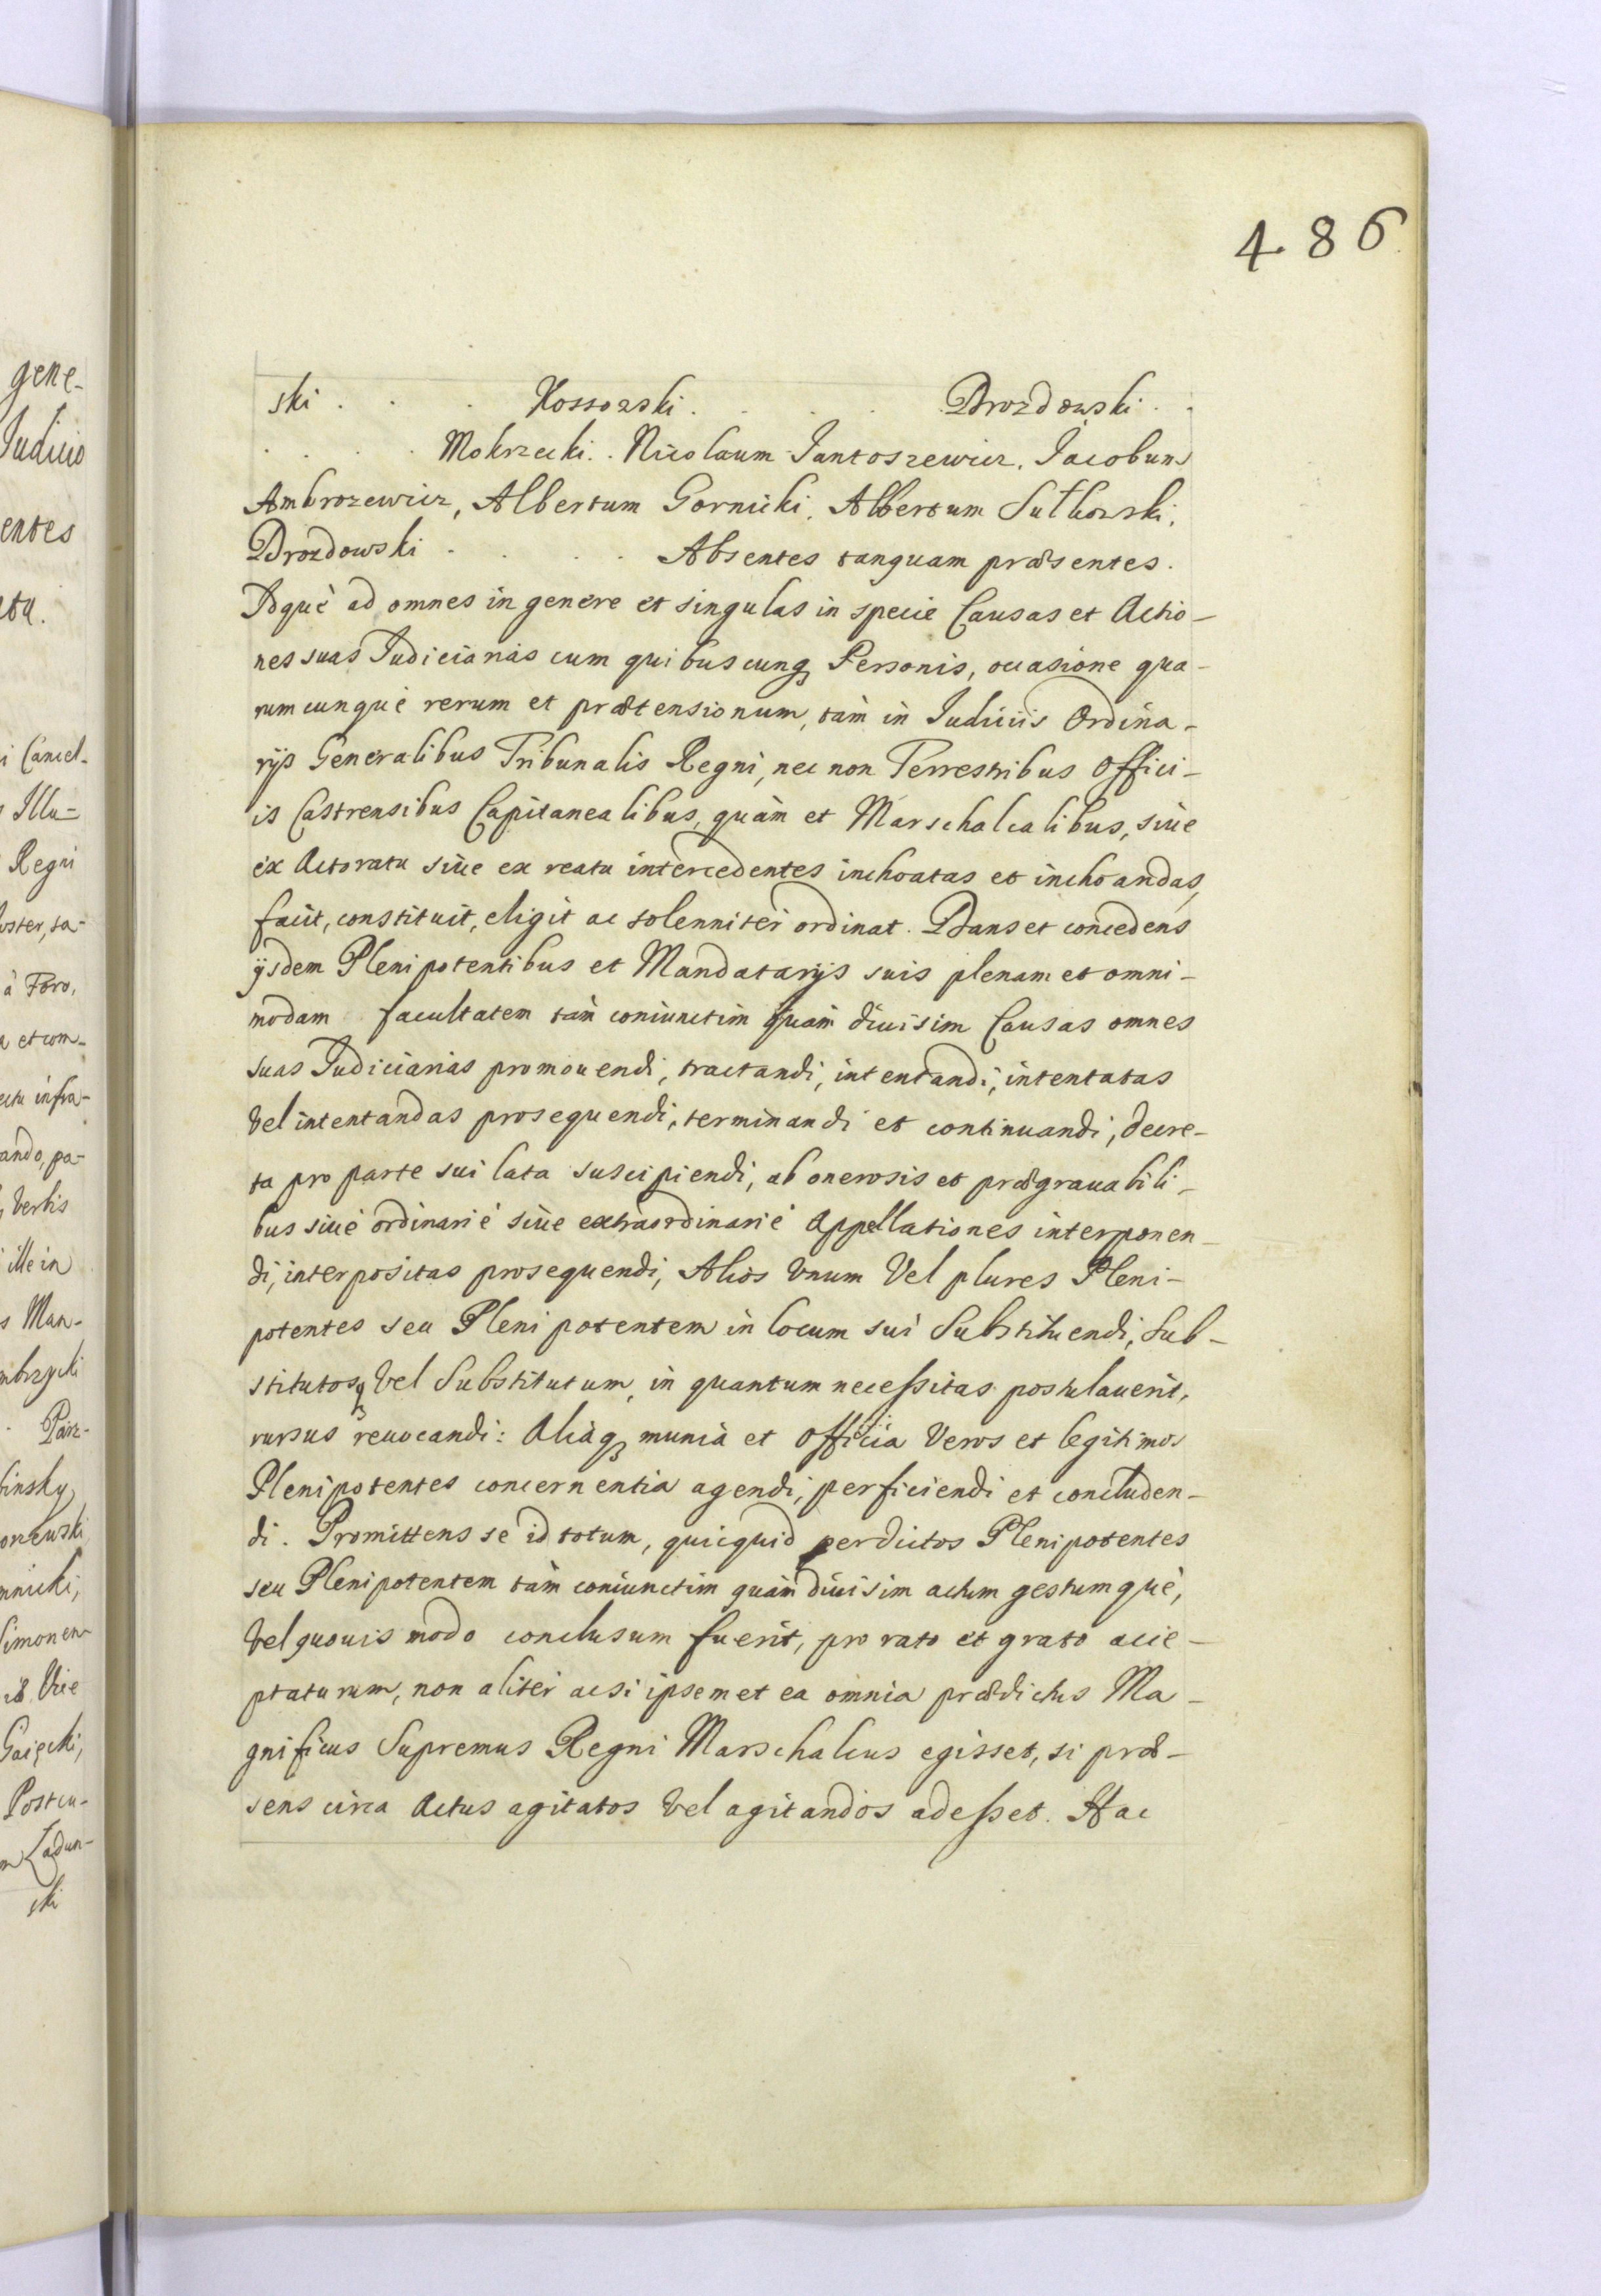 486
ski . . . Kossowski. . . . Drozdowski . .
. . . . Mokrzecki. . Nicolaum Jantoszewicz. Jacobum
Ambrozewicz, Albertum Gornicki, Albertum Sutkowski,
Drozdowski . . . . Absentes tanquam præsentes.
Idquè ad omnes in genere et singulas in specie Causas et Actio-
nes suas Judiciarias cum quibuscunq3 Personis, occasione qua-
rumcunquè rerum et prætensionum, tàm in Judiciis Ordina-
rijs Generalibus Tribunalis Regni, nec non Terrestribus Offici-
is Castrensibus Capitanealibus, quàm et Marschalcalibus, siue
ex Actoratu siue ex reatu intercedentes inchoatas et inchoandas,
facit, constituit, eligit ac solenniter ordinat. Dans et concedens
ijsdem Plenipotentibus et Mandatarijs suis plenam et omni-
modam facultatem tàm coniunctim quàm diuisim Causas omnes
suas Judiciarias promouendi, tractandi, intentandi, intentatas
Vel intentandas prosequendi, terminandi et continuandi, decre-
ta pro parte sui lata suscipiendi, ab onerosis et prægrauabili-
bus siuè ordinariè siue extraordinariè Appellationes interponen-
di, interpositas prosequendi, Alios Vnum Vel plures Pleni-
potentes seu Plenipotentem in locum sui Substituendi, Sub-
stitutosq3 Vel Substitutum, in quantum necessitas postulauerit,
rursus reuocandi: Aliaq3 munia et Officia Veros et legitimos
Plenipotentes concernentia agendi, perficiendi et concluden-
di. Promittens se id totum, quicquid per dictos Plenipotentes
seu Plenipotentem tàm coniunctim quàm diuisim actum gestumquè,
Vel quouis modo conclusum fuerit, pro rato et grato acce-
ptaturum, non aliter acsi ipsemet ea omnia prædictus Ma-
gnificus Supremus Regni Marschalcus egisset, si præ-
sens circa Actus agitatos Vel agitandos adesset. Hac